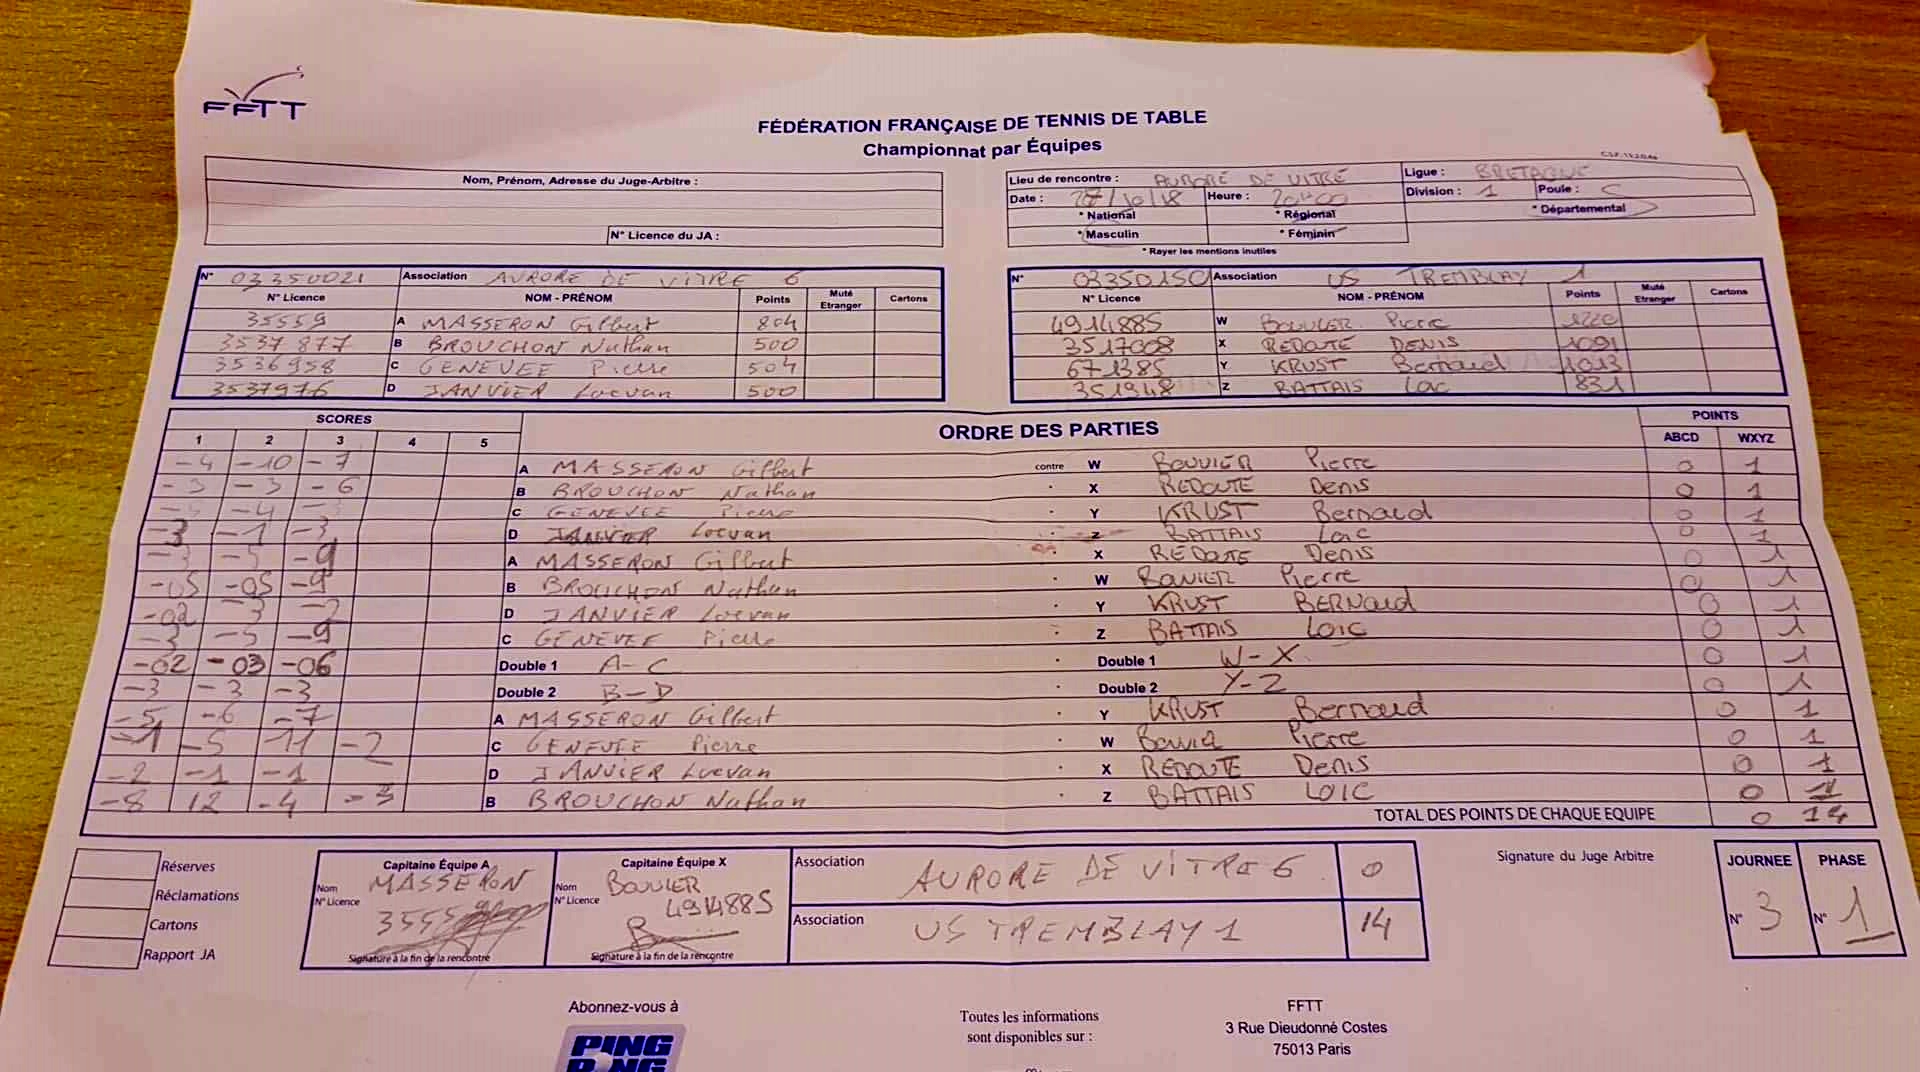 FFTT
FÉDÉRATION FRANÇAISE DE TENNIS DE TABLE
Championnat par Équipes
Nom, Prénom, Adresse du Juge-Arbitre :
N° Licence du JA :
Lieu de rencontre : AURORE DE VITRÉ Ligue : BRETAGNE
Date : /10/18 Heure : 20H00 Division : 1 Poule : C
* National * Régional * Départemental
* Masculin * Féminin
* Rayer les mentions inutiles
N° 03350021 Association AURORE DE VITRE 6
N° Licence NOM - PRÉNOM Points Muté Etranger Cartons
35559 A MASSERON Gilbert 804
3537877 B BROUCHON Nathan 500
3536958 C GENEVEE Pierre 504
3537976 D JANVIER Loevan 500
N° 03350150 Association US TREMBLAY 1
N° Licence NOM - PRÉNOM Points Muté Etranger Cartons
4914885 W BOUVIER Pierre 1220
3517008 X REDOUTE DENIS 1091
671385 Y KRUST Bernard 1013
351948 Z BATTAIS Loic 831
SCORES ORDRE DES PARTIES POINTS
1 2 3 4 5 ABCD WXYZ
-4 -10 -7 A MASSERON Gilbert contre W BOUVIER Pierre 0 1
-3 -3 -6 B BROUCHON Nathan X REDOUTE Denis 0 1
-5 -4 C GENEVEE Pierre Y KRUST Bernard 0 1
-3 -1 -3 D JANVIER Loevan Z BATTAIS Loic 0 1
-3 -5 -9 A MASSERON Gilbert X REDOUTE Denis 0 1
-05 -05 -9 B BROUCHON Nathan W BOUVIER Pierre 0 1
-02 -3 -2 D JANVIER Loevan Y KRUST BERNARD 0 1
-3 -5 -9 C GENEVEE Pierre Z BATTAIS LOIC 0 1
-02 -03 -06 Double 1 A-C Double 1 W-X 0 1
-3 -3 -3 Double 2 B-D Double 2 Y-Z 0 1
-5 -6 -7 A MASSERON Gilbert Y KRUST Bernard 0 1
-1 -5 11 -2 C GENEVEE Pierre W Bouvier Pierre 0 1
-2 -1 -1 D JANVIER Loevan X REDOUTE Denis 0 1
-8 12 -4 -3 B BROUCHON Nathan Z BATTAIS LOIC 0 1
TOTAL DES POINTS DE CHAQUE EQUIPE 0 14
Réserves
Réclamations
Cartons
Rapport JA
Capitaine Équipe A
Nom MASSERON
N° Licence 35559
Signature à la fin de la rencontre
Capitaine Équipe X
Nom BOUVIER
N° Licence 4914885
Signature à la fin de la rencontre
Association AURORE DE VITRE 6 0
Association US TREMBLAY 1 14
Signature du Juge Arbitre
JOURNEE PHASE
N° 3 N° 1
Abonnez-vous à
PING
PONG
Toutes les informations
sont disponibles sur :
FFTT
3 Rue Dieudonné Costes
75013 Paris